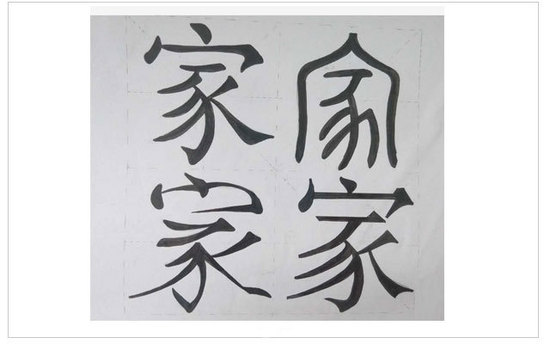 家家
家家